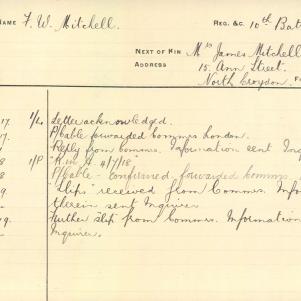 NAME F. W. Mitchell. REG. &C. 10th Bat
NEXT OF KIN Mrs James Mitchell
ADDRESS 15. Ann Street.
North Croydon.
17. Letter acknowledged.
7. P/Cable forwarded Commrs London.
Reply from Commrs. Information sent Inq
8 1/P "K. in A. 4/7/18"
8 P/Cable - confirmed. forwarded Commrs.
9 "Slip" received from Commrs. Infor
therein sent Inquirer
19. Further slip from Commrs. Information
Inquirer.